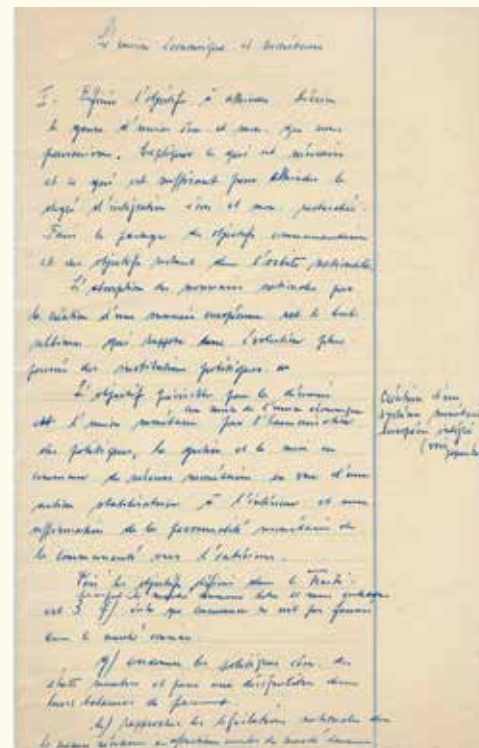 L'union économique et monétaire
I. Définir l'objectif à atteindre. Décrire
le genre d'union écon et mon. que nous
poursuivons. Expliquer ce qui est nécessaire
et ce qui est suffisant pour atteindre le
degré d'intégration écon et mon. recherché.
Faire le partage des objectifs communautaires
et des objectifs restant dans l'orbite nationale.
L'absorption des monnaies nationales par
la création d'une monnaie européenne est le but
ultime qui suppose une évolution plus
poussée des institutions politiques.
L'objectif prévisible pour la décennie
est l'union monétaire par l'harmonisation
des politiques, la gestion et la mise en
commun de réserves monétaires en vue d'une
action stabilisatrice à l'intérieur et une
affirmation de la personnalité monétaire de
la communauté vers l'extérieur.
Création d'un
système monétaire
européen intégré
Voir les objectifs définis dans le Traité.
art 3. f) éviter que concurrence ne soit pas faussée
dans le marché commun
g) coordonner les politiques écon. des
états membres et parer aux déséquilibres dans
leurs balances de paiement
h) rapprocher les législations nationales dans
la mesure nécessaire au du marché commun